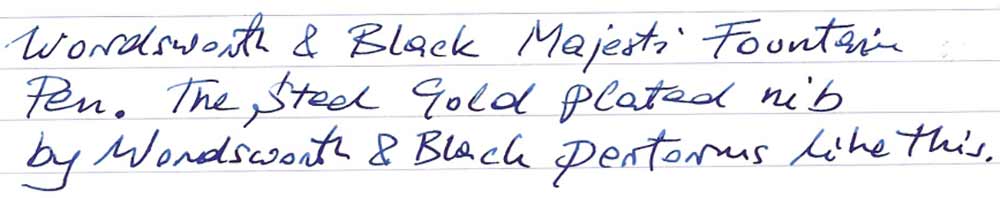 Wordsworth & Black Majesti Fountain
Pen. The, Steel Gold plated nib
by Wordsworth & Black performs like this.